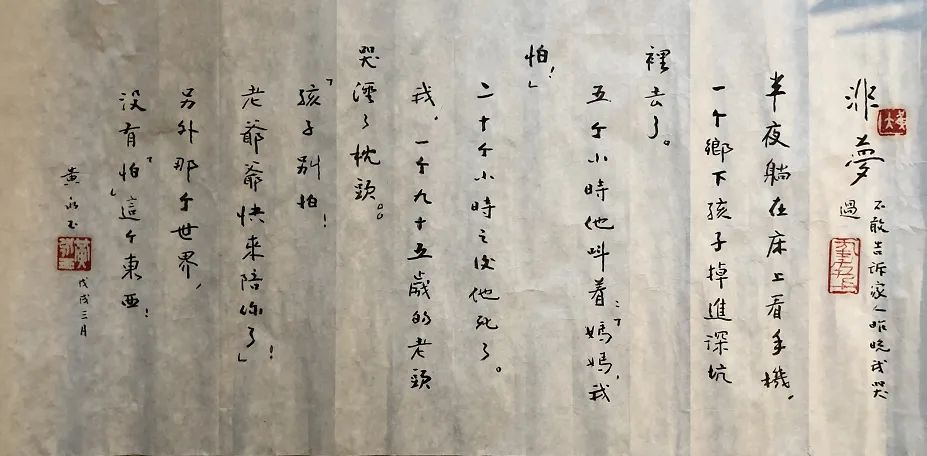 非夢
不敢告诉家人昨晚我哭
過
半夜躺在床上看手機，
一个鄉下孩子掉進深坑
裡去了。
五个小時他叫着：「媽媽，我
怕！」
二十个小時之後他死了。
我，一个九十五歲的老頭
哭溼了枕頭。
「孩子别怕！
老爺爺快來陪你了！」
另外那个世界，
没有「怕」這个東西！
黄永玉
戊戌三月